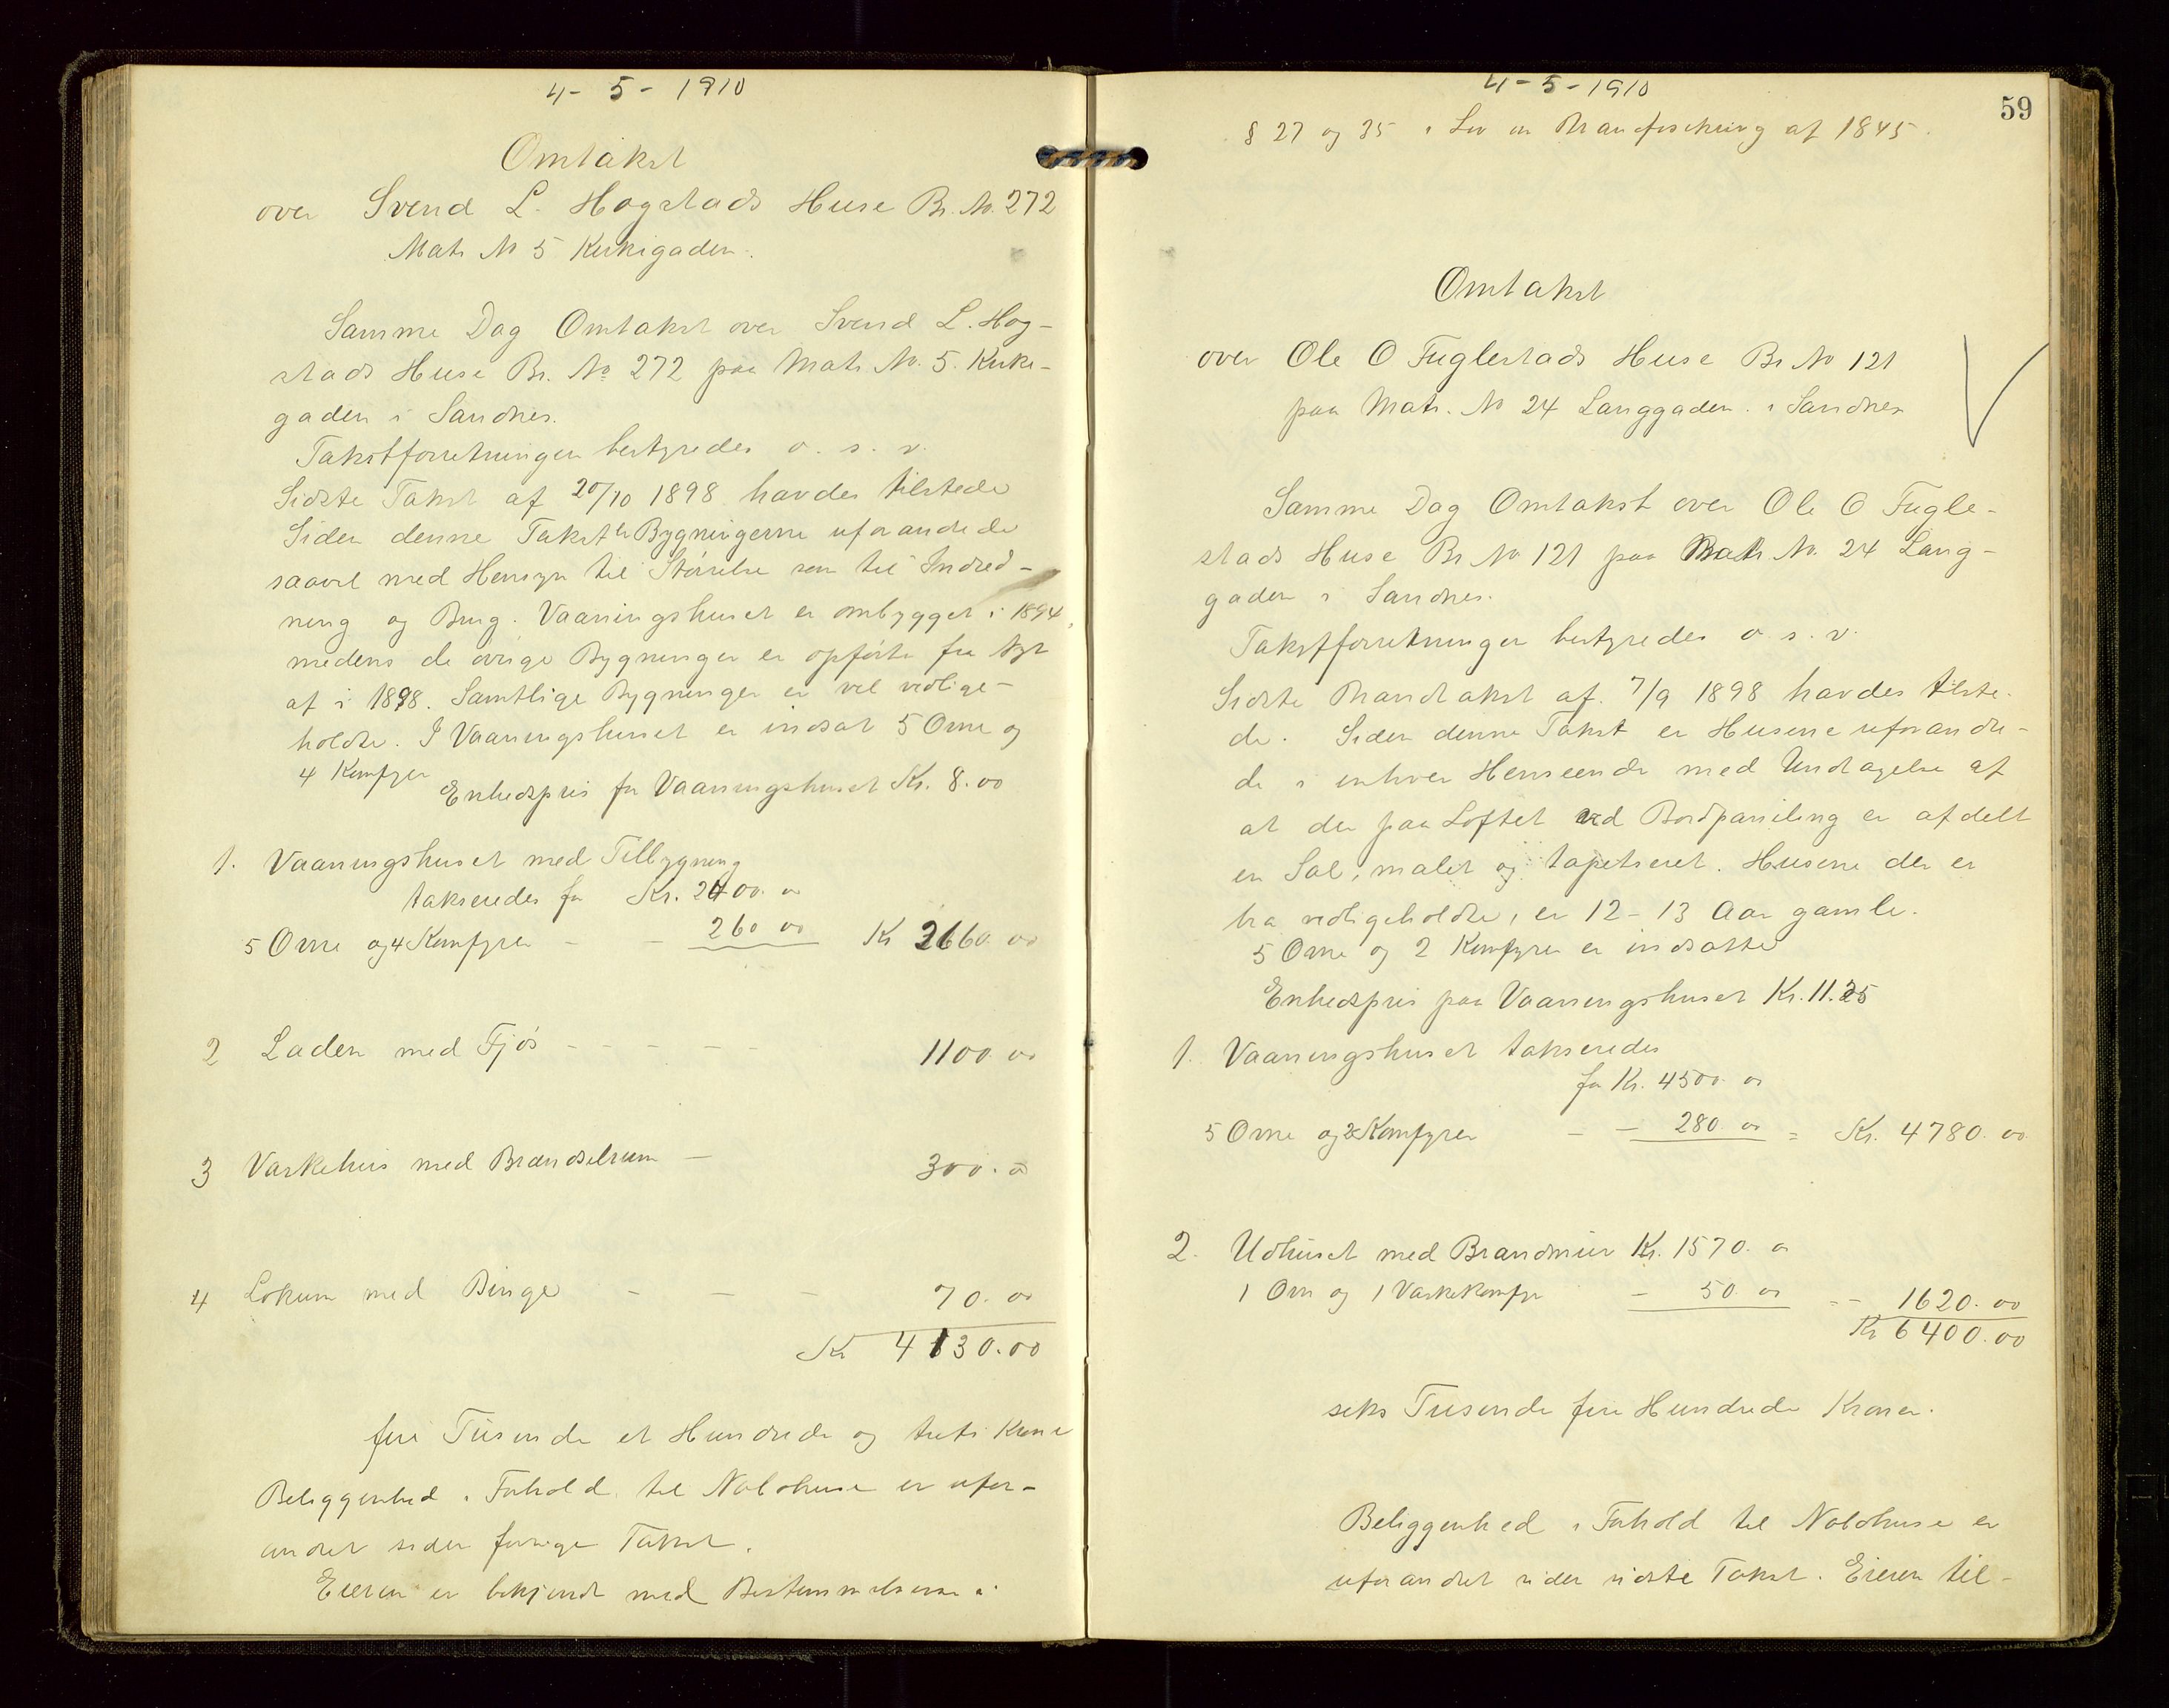 4-5-1910
Omtakst
over Svend L. Hogstads Huse Br. No. 272
Matr No 5 Kirkegaden.
Samme Dag Omtakst over Svend L. Hog-
stads Huse Br. No 272 paa Matr. No. 5. Kirke-
gaden i Sandnes.
Takstforretningen bestyredes o. s. v.
Sidste Takst af 20/10 1898 havdes tilstede
Siden denne Takst er Bygningerne uforandrede
saavel med Hensyn til Størrelse som til Indred-
ning og Brug. Vaaningshuset er ombygget i 1894,
medens de øvrige Bygninger er opførte fra Nyt
af i 1898. Samtlige Bygninger er vel vedlige-
holdte. I Vaaningshuset er indsat 5 Ovne og
4 Komfyrer
Enhedspris for Vaaningshuset Kr. 8.00
1. Vaaningshuset med Tilbygning
takseredes for Kr. 2400.00
5 Ovne og 4 Komfyrer - - 260 00 Kr 2660.00
2 Laden med Fjøs - - - - - - 1100.00
3 Vaskehus med Brændselrum - 300.00
4 Lokum med Binge - - - 70.00
Kr 4130.00
fire Tusende et Hundrede og treti Krone
Beliggenhed i Forhold til Nabohuse er ufor-
andret siden forrige Takst.
Eieren er bekjendt med Bestemmelserne i
4-5-1910
59
§ 27 og 35 i Lov om Brandforsikring af 1845.
Omtakst
over Ole O Fuglestads Huse Br No 121
paa Matr. No 24 Langgaden. i Sandnes
Samme Dag Omtakst over Ole O Fugle-
stads Huse Br No 121 paa Matr No. 24 Lang-
gaden i Sandnes.
Takstforretningen bestyredes o. s. v.
Sidste Brandtakst af 7/9 1898 havdes tilste-
de. Siden denne Takst er Husene uforandre-
de i enhver Henseende med Undtagelse af
at der paa Loftet ved Bordpaneling er afdelt
en Sal, malet og tapetseret. Husene der er
bra vedligeholdte, er 12-13 Aar gamle.
5 Ovne og 2 Komfyrer er indsatte
Enhedspris paa Vaaningshuset Kr. 11.25
1. Vaaningshuset takseredes
for Kr. 4500.00
5 Ovne og 2 Komfyrer - - 280.00 = Kr. 4780.00
2. Udhuset med Brandmur Kr. 1570.00
1 Ovn og 1 Vaskekomfyr - 50.00 = - 1620.00
Kr 6400.00
seks Tusende fire Hundrede Kroner.
Beliggenhed i Forhold til Nabohuse er
uforandret siden sidste Takst. Eieren til-